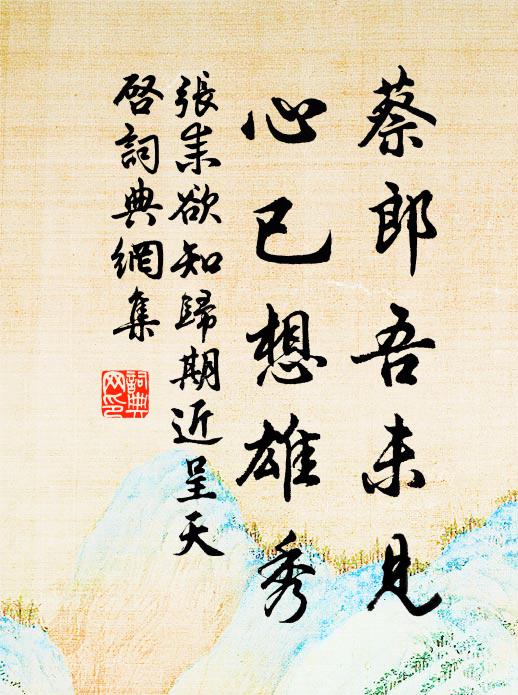 蔡郎吾未見
心已想雄秀
張耒欲知歸期近呈天
啓詞典網集
詞典
网印